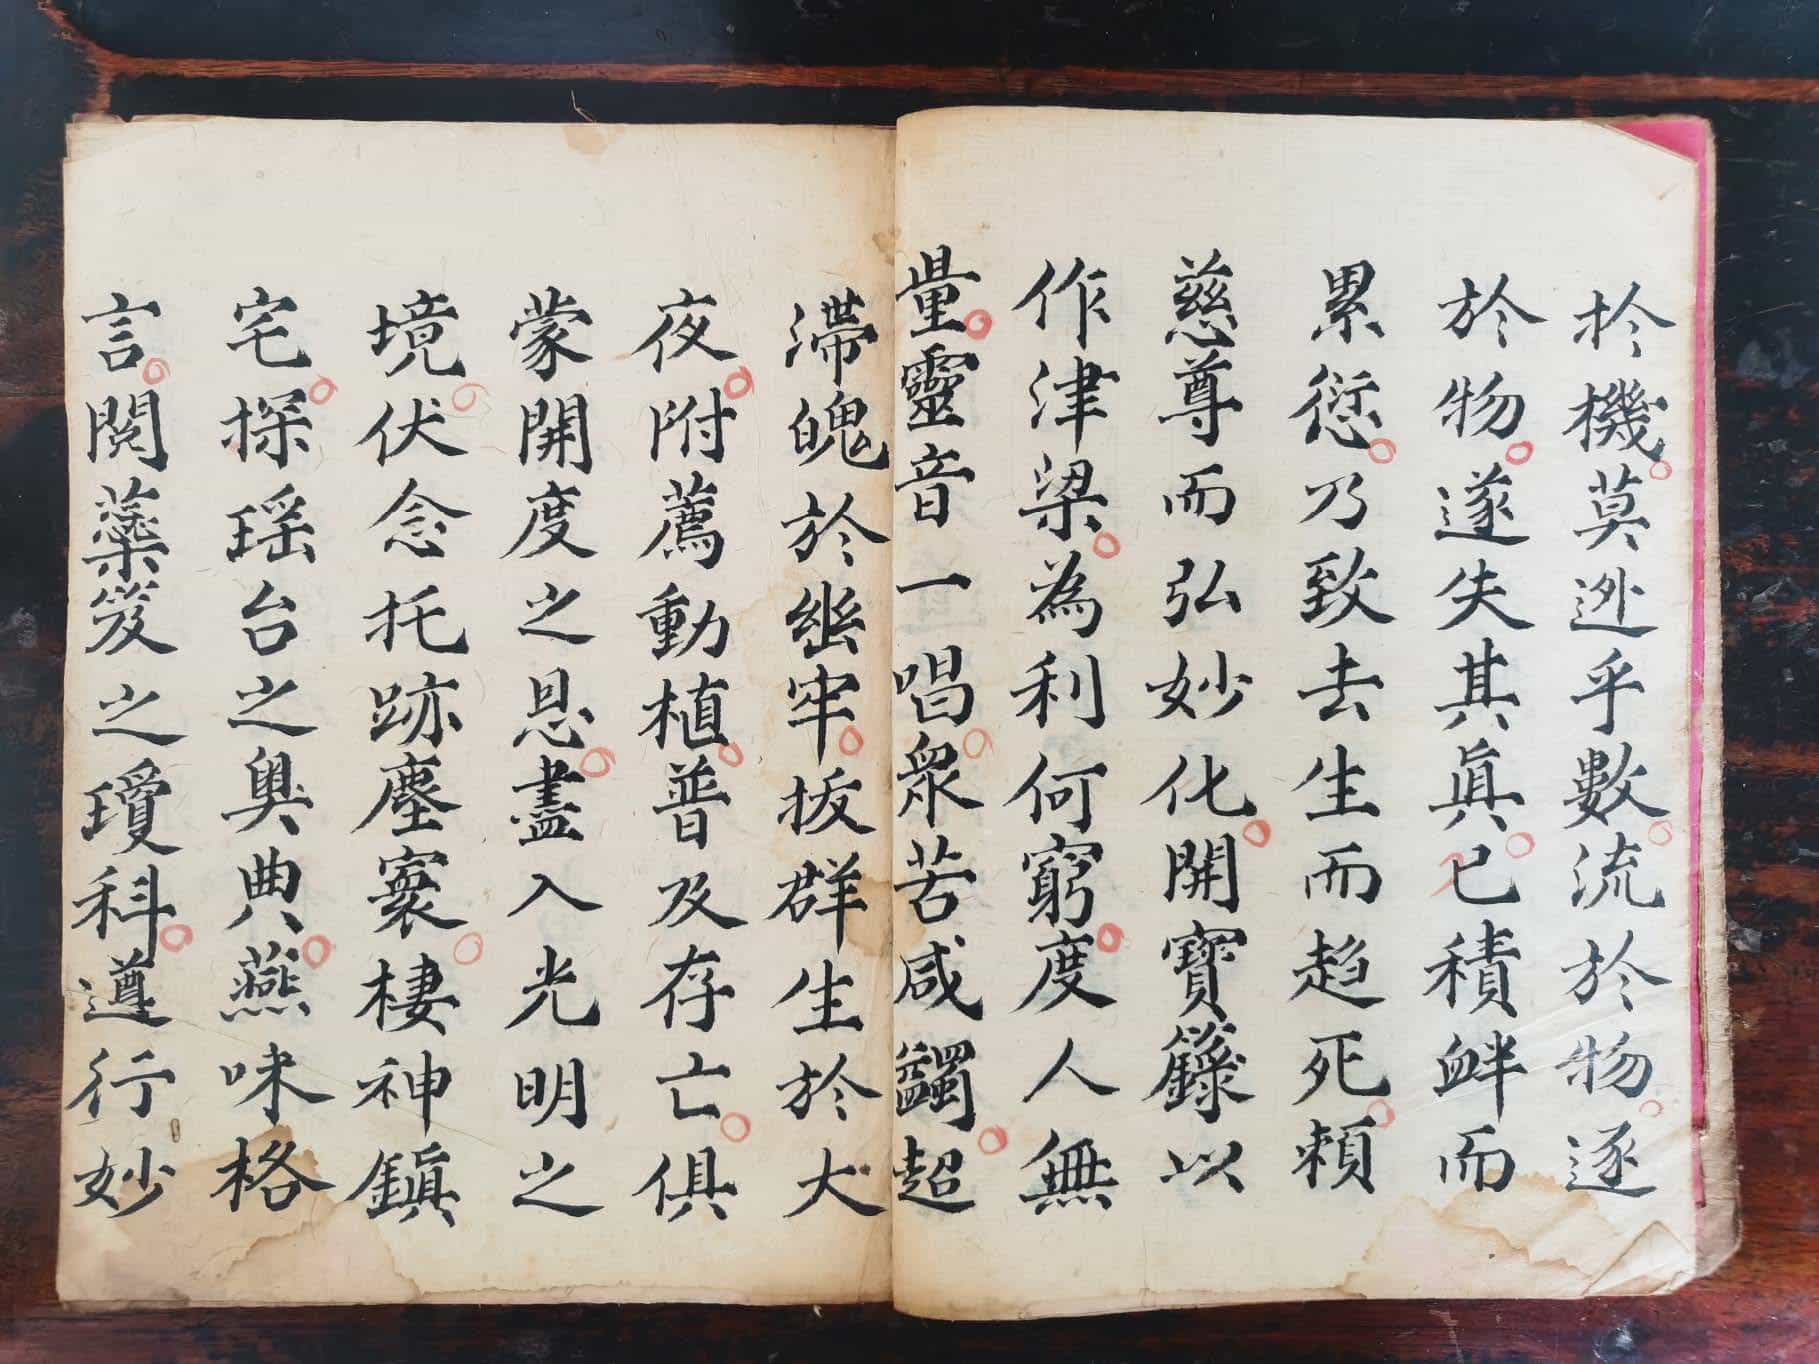 扵機。莫迯乎數。流於物。逐
於物。遂失其眞。已積衅而
累愆。乃致去生而趋死。頼
慈尊而弘妙化。開寶籙以
作津梁。為利何窮。度人無
量。靈音一唱。衆苦咸蠲。超
滯魄於幽牢。拔群生於大
夜。附薦動植。普及存亡。俱
蒙開度之恩。盡入光明之
境。伏念托跡塵寰。棲神鎮
宅。探瑶台之奧典。燕味格
言。閱蘂笈之瓊科。遵行妙